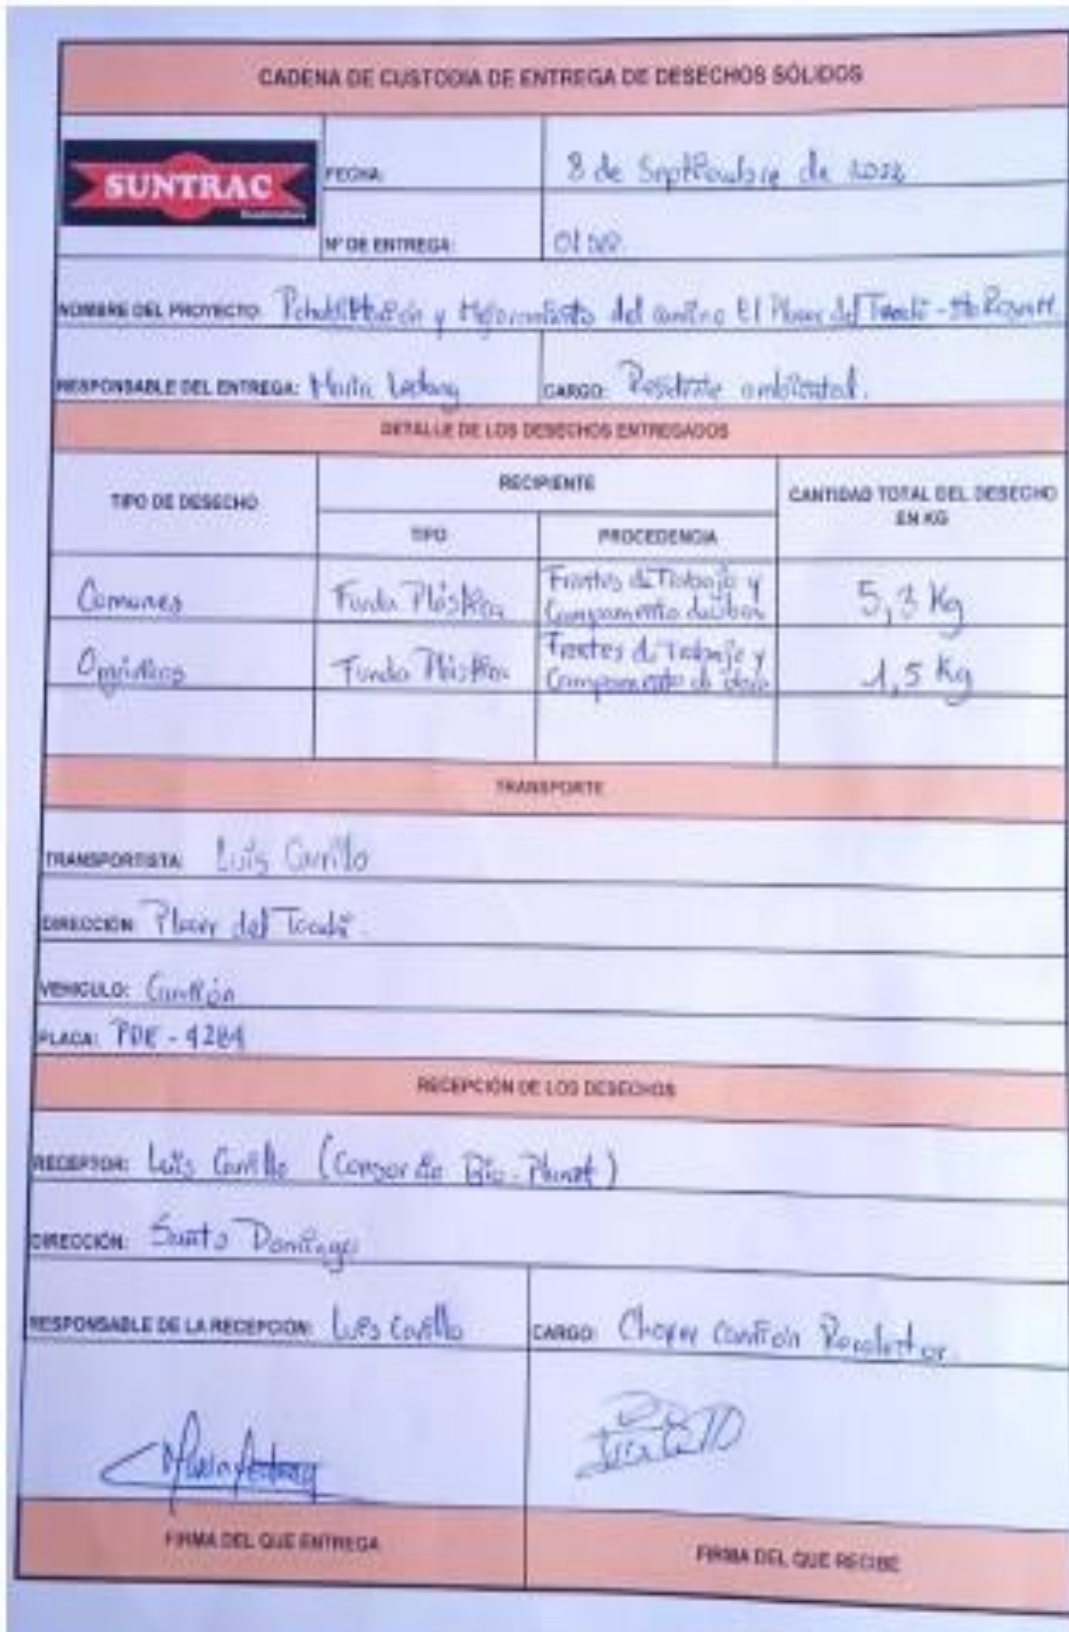 CADENA DE CUSTODIA DE ENTREGA DE DESECHOS SÓLIDOS
SUNTRAC
FECHA: 8 de Septiembre de
N° DE ENTREGA:
NOMBRE DEL PROYECTO: y Mejoramiento del camino El Placer del Toachi -
RESPONSABLE DEL ENTREGA: María CARGO: Residente ambiental.
DETALLE DE LOS DESECHOS ENTREGADOS
TIPO DE DESECHO RECIPIENTE CANTIDAD TOTAL DEL DESECHO EN KG
TIPO PROCEDENCIA
Comunes Funda Plástica Frentes de Trabajo y Campamento de obra 5,3 Kg
Orgánicos Funda Plástica Frentes de Trabajo y Campamento de obra 1,5 Kg
TRANSPORTE
TRANSPORTISTA: Luis Carrillo
DIRECCIÓN: Placer del Toachi.
VEHICULO: Camión
PLACA: - 4284
RECEPCIÓN DE LOS DESECHOS
RECEPTOR: Luis Carrillo (Consorcio Bio-Planet)
DIRECCIÓN: Santo Domingo
RESPONSABLE DE LA RECEPCIÓN: Luis Carrillo CARGO: Chofer Camión Recolector.
FIRMA DEL QUE ENTREGA FIRMA DEL QUE RECIBE